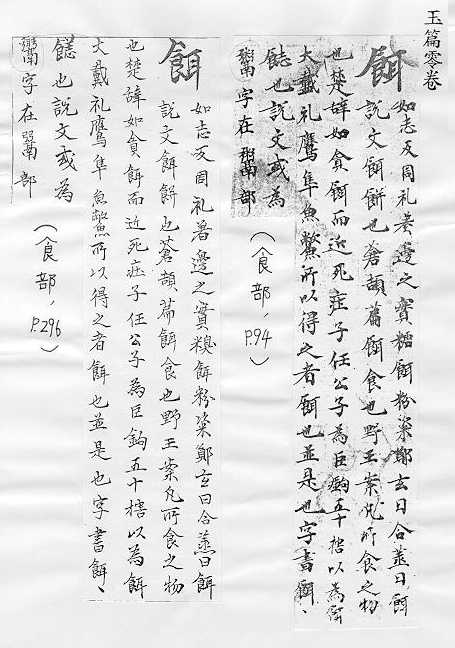 玉篇零卷
餌
如志反周礼羞籩之實糗餌粉粢鄭玄曰合蒸曰餌
說文餌餅也蒼頡篇餌食也野王案凡所食之物
也楚辞如貪餌而近死庄子任公子為巨鉤五十犗以為餌
大戴礼鷹隼魚鱉所以得之者餌也並是也字書餌、
餻也說文或為
鬻字在䰜部
（食部，P.94）
餌
如志反周礼著邊之實糗餌粉粢鄭玄曰合蒸曰餌
說文餌餅也蒼頡篇餌食也野王案凡所食之物
也楚辞如貪餌而近死庄子任公子為巨鉤五十犗以為餌
大戴礼鷹隼魚鱉所以得之者餌也並是也字書餌、
也說文或為
字在部
（食部，P.296）